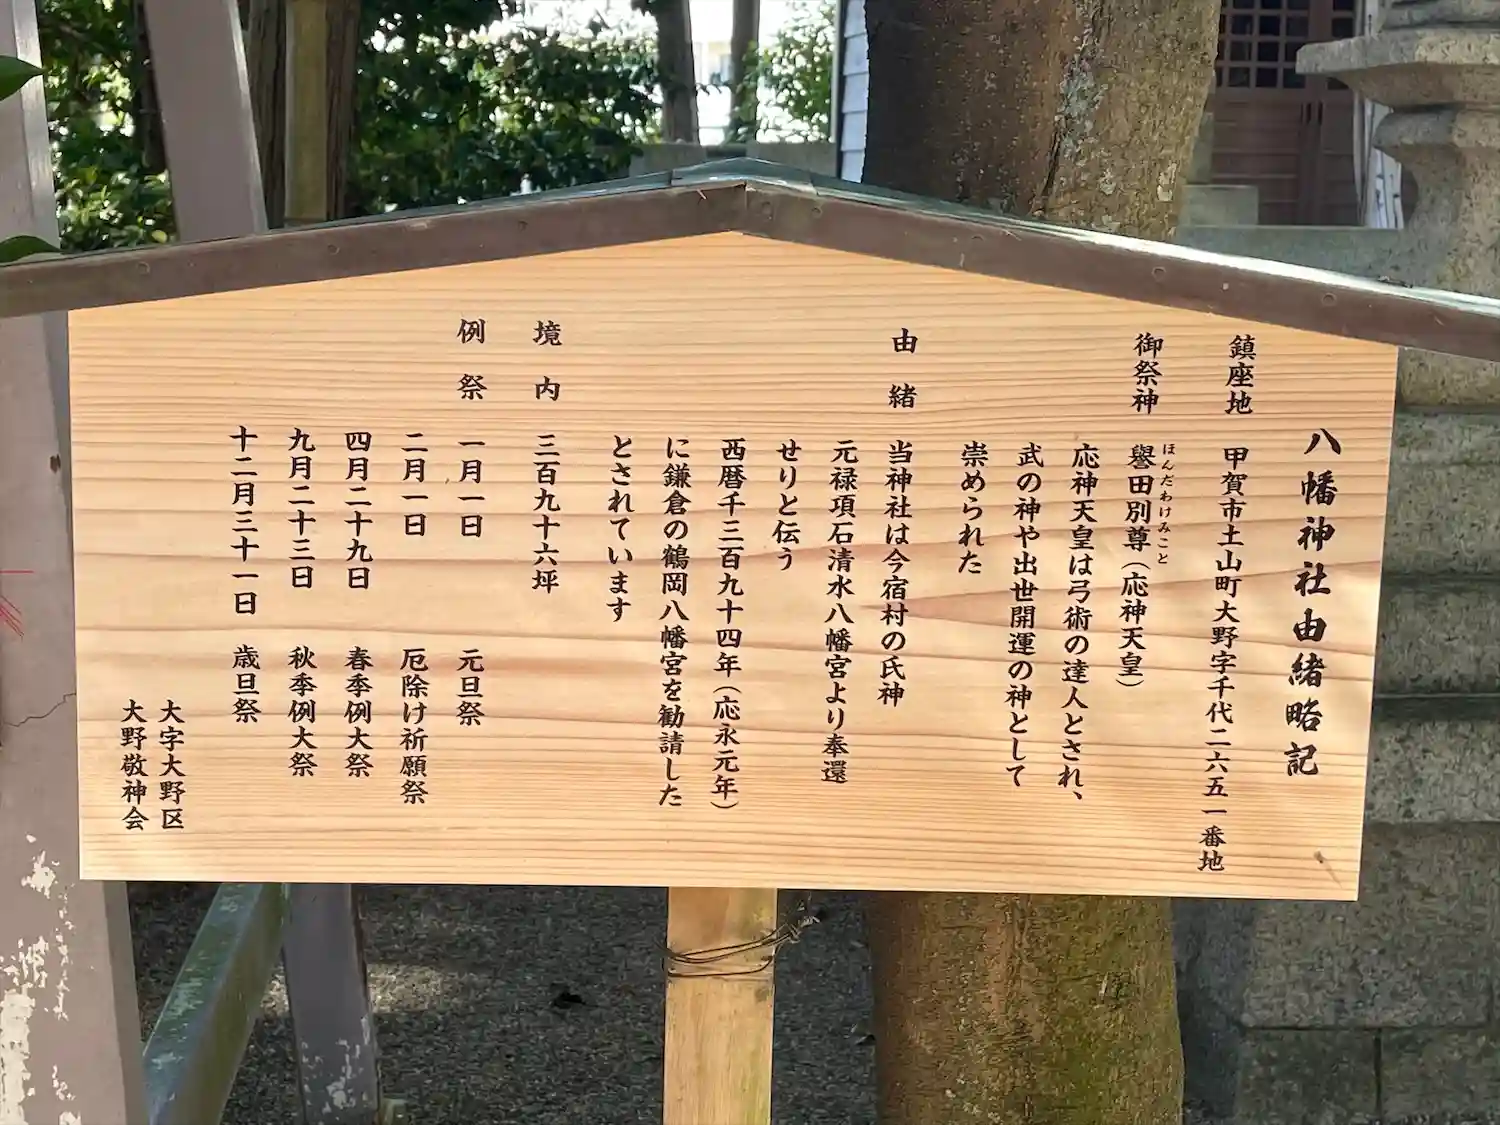 八幡神社由緒略記
鎮座地 甲賀市土山町大野字千代二六五一番地
御祭神 譽田別尊(応神天皇)
ほんだわけみこと
応神天皇は弓術の達人とされ、
武の神や出世開運の神として
崇められた
由緒 当神社は今宿村の氏神
元禄項石清水八幡宮より奉還
せりと伝う
西暦千三百九十四年(応永元年)
に鎌倉の鶴岡八幡宮を勧請した
とされています
境内 三百九十六坪
例祭 一月一日 元旦祭
二月一日 厄除け祈願祭
四月二十九日 春季例大祭
九月二十三日 秋季例大祭
十二月三十一日 歳旦祭
大字大野区
大野敬神会